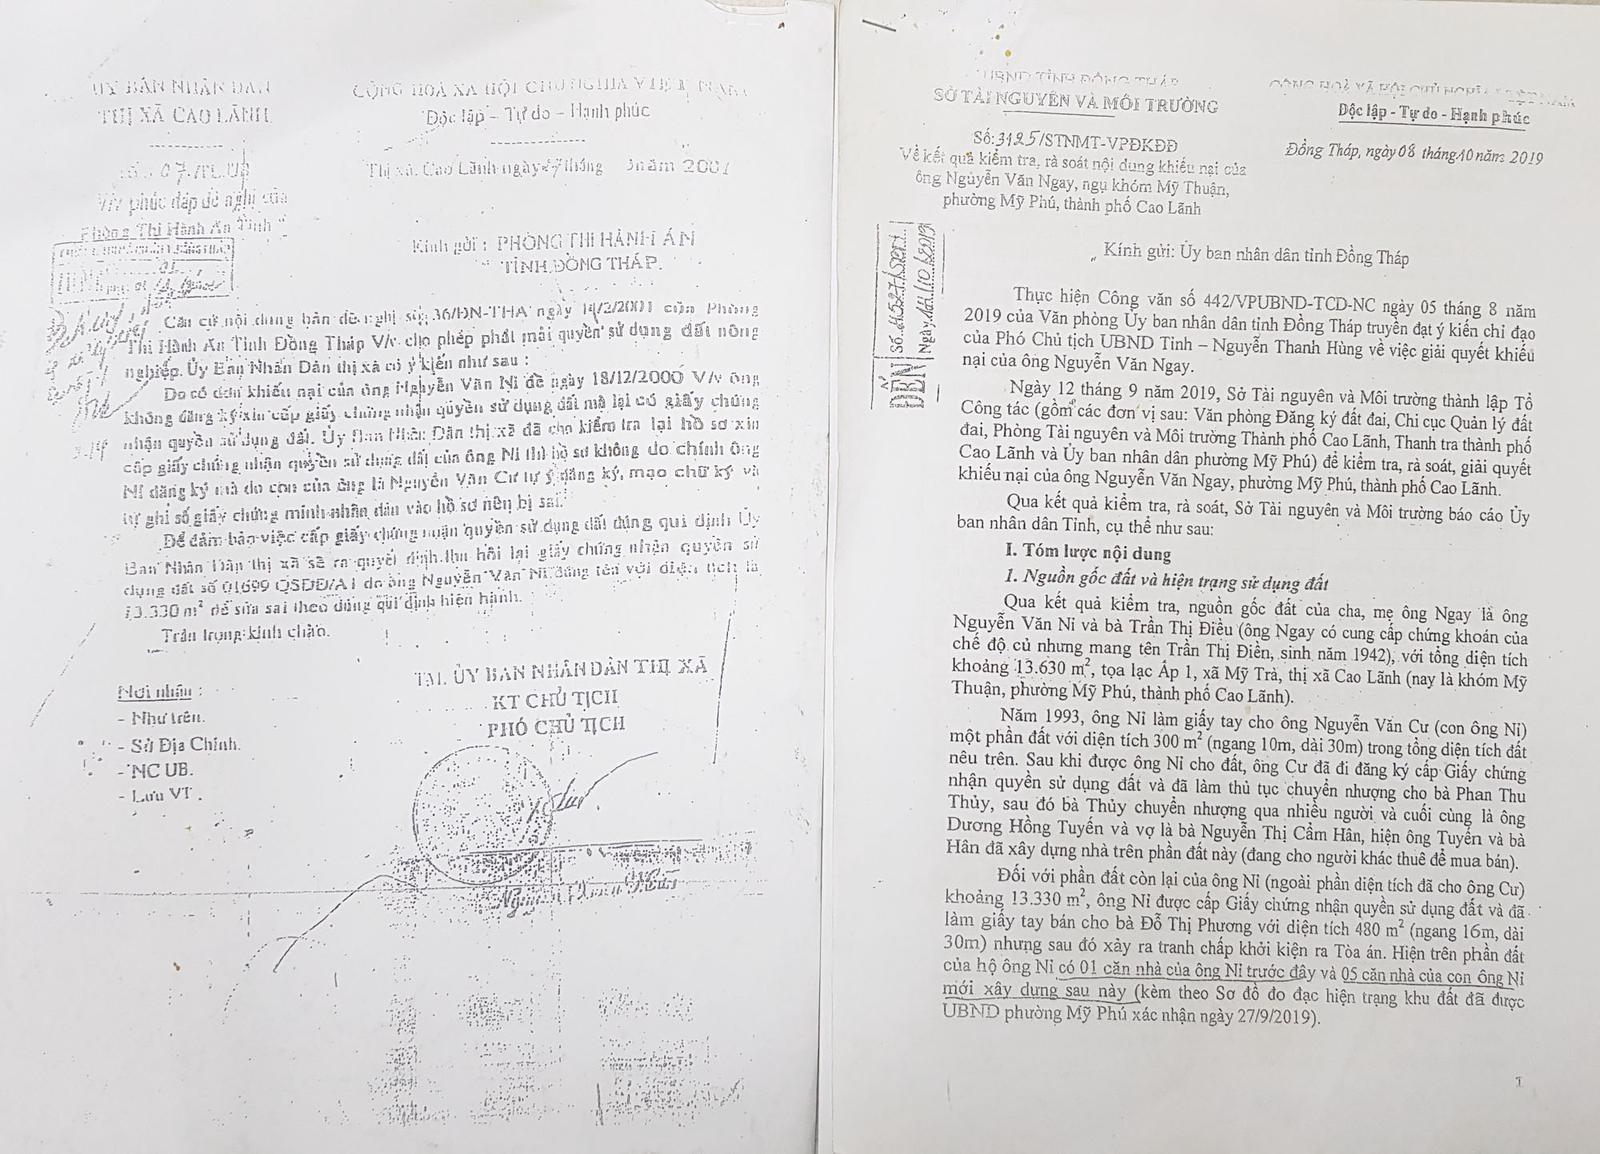 ỦY BAN NHÂN DÂN
THỊ XÃ CAO LÃNH
CỘNG HOÀ XÃ HỘI CHỦ NGHĨA VIỆT NAM
Độc lập – Tự do – Hạnh phúc
07/TL.UB
V/v phúc đáp đề nghị của
Phòng Thi Hành Án Tỉnh
Thị xã Cao Lãnh ngày tháng năm 2001
Kính gửi : PHÒNG THI HÀNH ÁN
TỈNH ĐỒNG THÁP.
Căn cứ nội dung bản đề nghị số: 36/ĐN-THA ngày 14/2/2001 của Phòng
Thi Hành Án Tỉnh Đồng Tháp V/v cho phép phát mãi quyền sử dụng đất nông
nghiệp. Ủy Ban Nhân Dân thị xã có ý kiến như sau :
Do có đơn khiếu nại của ông Nguyễn Văn Ni đề ngày 18/12/2000 V/v ông
không đăng ký xin cấp giấy chứng nhận quyền sử dụng đất mà lại có giấy chứng
nhận quyền sử dụng đất. Ủy Ban Nhân Dân thị xã đã cho kiểm tra lại hồ sơ xin
cấp giấy chứng nhận quyền sử dụng đất của ông Ni thì hồ sơ không do chính ông
Ni đăng ký mà do con của ông là Nguyễn Văn Cư tự ý đăng ký, mạo chữ ký và
tự ghi số giấy chứng minh nhân dân vào hồ sơ nên bị sai.
Để đảm bảo việc cấp giấy chứng nhận quyền sử dụng đất đúng qui định Ủy
Ban Nhân Dân thị xã sẽ ra quyết định thu hồi lại giấy chứng nhận quyền sử
dụng đất số 01699 QSDĐ/A1 do ông Nguyễn Văn Ni đứng tên với diện tích là
13.330 m² để sửa sai theo đúng qui định hiện hành.
Trân trọng kính chào.
Nơi nhận :
- Như trên.
- Sở Địa Chính.
- NC UB.
- Lưu VT .
TM. ỦY BAN NHÂN DÂN THỊ XÃ
KT CHỦ TỊCH
PHÓ CHỦ TỊCH
UBND TỈNH ĐỒNG THÁP
SỞ TÀI NGUYÊN VÀ MÔI TRƯỜNG
CỘNG HOÀ XÃ HỘI CHỦ NGHĨA VIỆT NAM
Độc lập - Tự do - Hạnh phúc
Số: 3125/STNMT-VPĐKĐĐ
Về kết quả kiểm tra, rà soát nội dung khiếu nại của
ông Nguyễn Văn Ngay, ngụ khóm Mỹ Thuận,
phường Mỹ Phú, thành phố Cao Lãnh
Đồng Tháp, ngày 08 tháng 10 năm 2019
ĐẾN
Số
Ngày
Kính gửi: Ủy ban nhân dân tỉnh Đồng Tháp
Thực hiện Công văn số 442/VPUBND-TCD-NC ngày 05 tháng 8 năm
2019 của Văn phòng Ủy ban nhân dân tỉnh Đồng Tháp truyền đạt ý kiến chỉ đạo
của Phó Chủ tịch UBND Tỉnh – Nguyễn Thanh Hùng về việc giải quyết khiếu
nại của ông Nguyễn Văn Ngay.
Ngày 12 tháng 9 năm 2019, Sở Tài nguyên và Môi trường thành lập Tổ
Công tác (gồm các đơn vị sau: Văn phòng Đăng ký đất đai, Chi cục Quản lý đất
đai, Phòng Tài nguyên và Môi trường Thành phố Cao Lãnh, Thanh tra thành phố
Cao Lãnh và Ủy ban nhân dân phường Mỹ Phú) để kiểm tra, rà soát, giải quyết
khiếu nại của ông Nguyễn Văn Ngay, phường Mỹ Phú, thành phố Cao Lãnh.
Qua kết quả kiểm tra, rà soát, Sở Tài nguyên và Môi trường báo cáo Ủy
ban nhân dân Tỉnh, cụ thể như sau:
I. Tóm lược nội dung
1. Nguồn gốc đất và hiện trạng sử dụng đất
Qua kết quả kiểm tra, nguồn gốc đất của cha, mẹ ông Ngay là ông
Nguyễn Văn Ni và bà Trần Thị Điều (ông Ngay có cung cấp chứng khoán của
chế độ củ nhưng mang tên Trần Thị Điền, sinh năm 1942), với tổng diện tích
khoảng 13.630 m², tọa lạc Ấp 1, xã Mỹ Trà, thị xã Cao Lãnh (nay là khóm Mỹ
Thuận, phường Mỹ Phú, thành phố Cao Lãnh).
Năm 1993, ông Ni làm giấy tay cho ông Nguyễn Văn Cư (con ông Ni)
một phần đất với diện tích 300 m² (ngang 10m, dài 30m) trong tổng diện tích đất
nêu trên. Sau khi được ông Ni cho đất, ông Cư đã đi đăng ký cấp Giấy chứng
nhận quyền sử dụng đất và đã làm thủ tục chuyển nhượng cho bà Phan Thu
Thủy, sau đó bà Thủy chuyển nhượng qua nhiều người và cuối cùng là ông
Dương Hồng Tuyến và vợ là bà Nguyễn Thị Cẩm Hân, hiện ông Tuyến và bà
Hân đã xây dựng nhà trên phần đất này (đang cho người khác thuê để mua bán).
Đối với phần đất còn lại của ông Ni (ngoài phần diện tích đã cho ông Cư)
khoảng 13.330 m², ông Ni được cấp Giấy chứng nhận quyền sử dụng đất và đã
làm giấy tay bán cho bà Đỗ Thị Phương với diện tích 480 m² (ngang 16m, dài
30m) nhưng sau đó xảy ra tranh chấp khởi kiện ra Tòa án. Hiện trên phần đất
của hộ ông Ni có 01 căn nhà của ông Ni trước đây và 05 căn nhà của con ông Ni
mới xây dựng sau này (kèm theo Sơ đồ đo đạc hiện trạng khu đất đã được
UBND phường Mỹ Phú xác nhận ngày 27/9/2019).
1